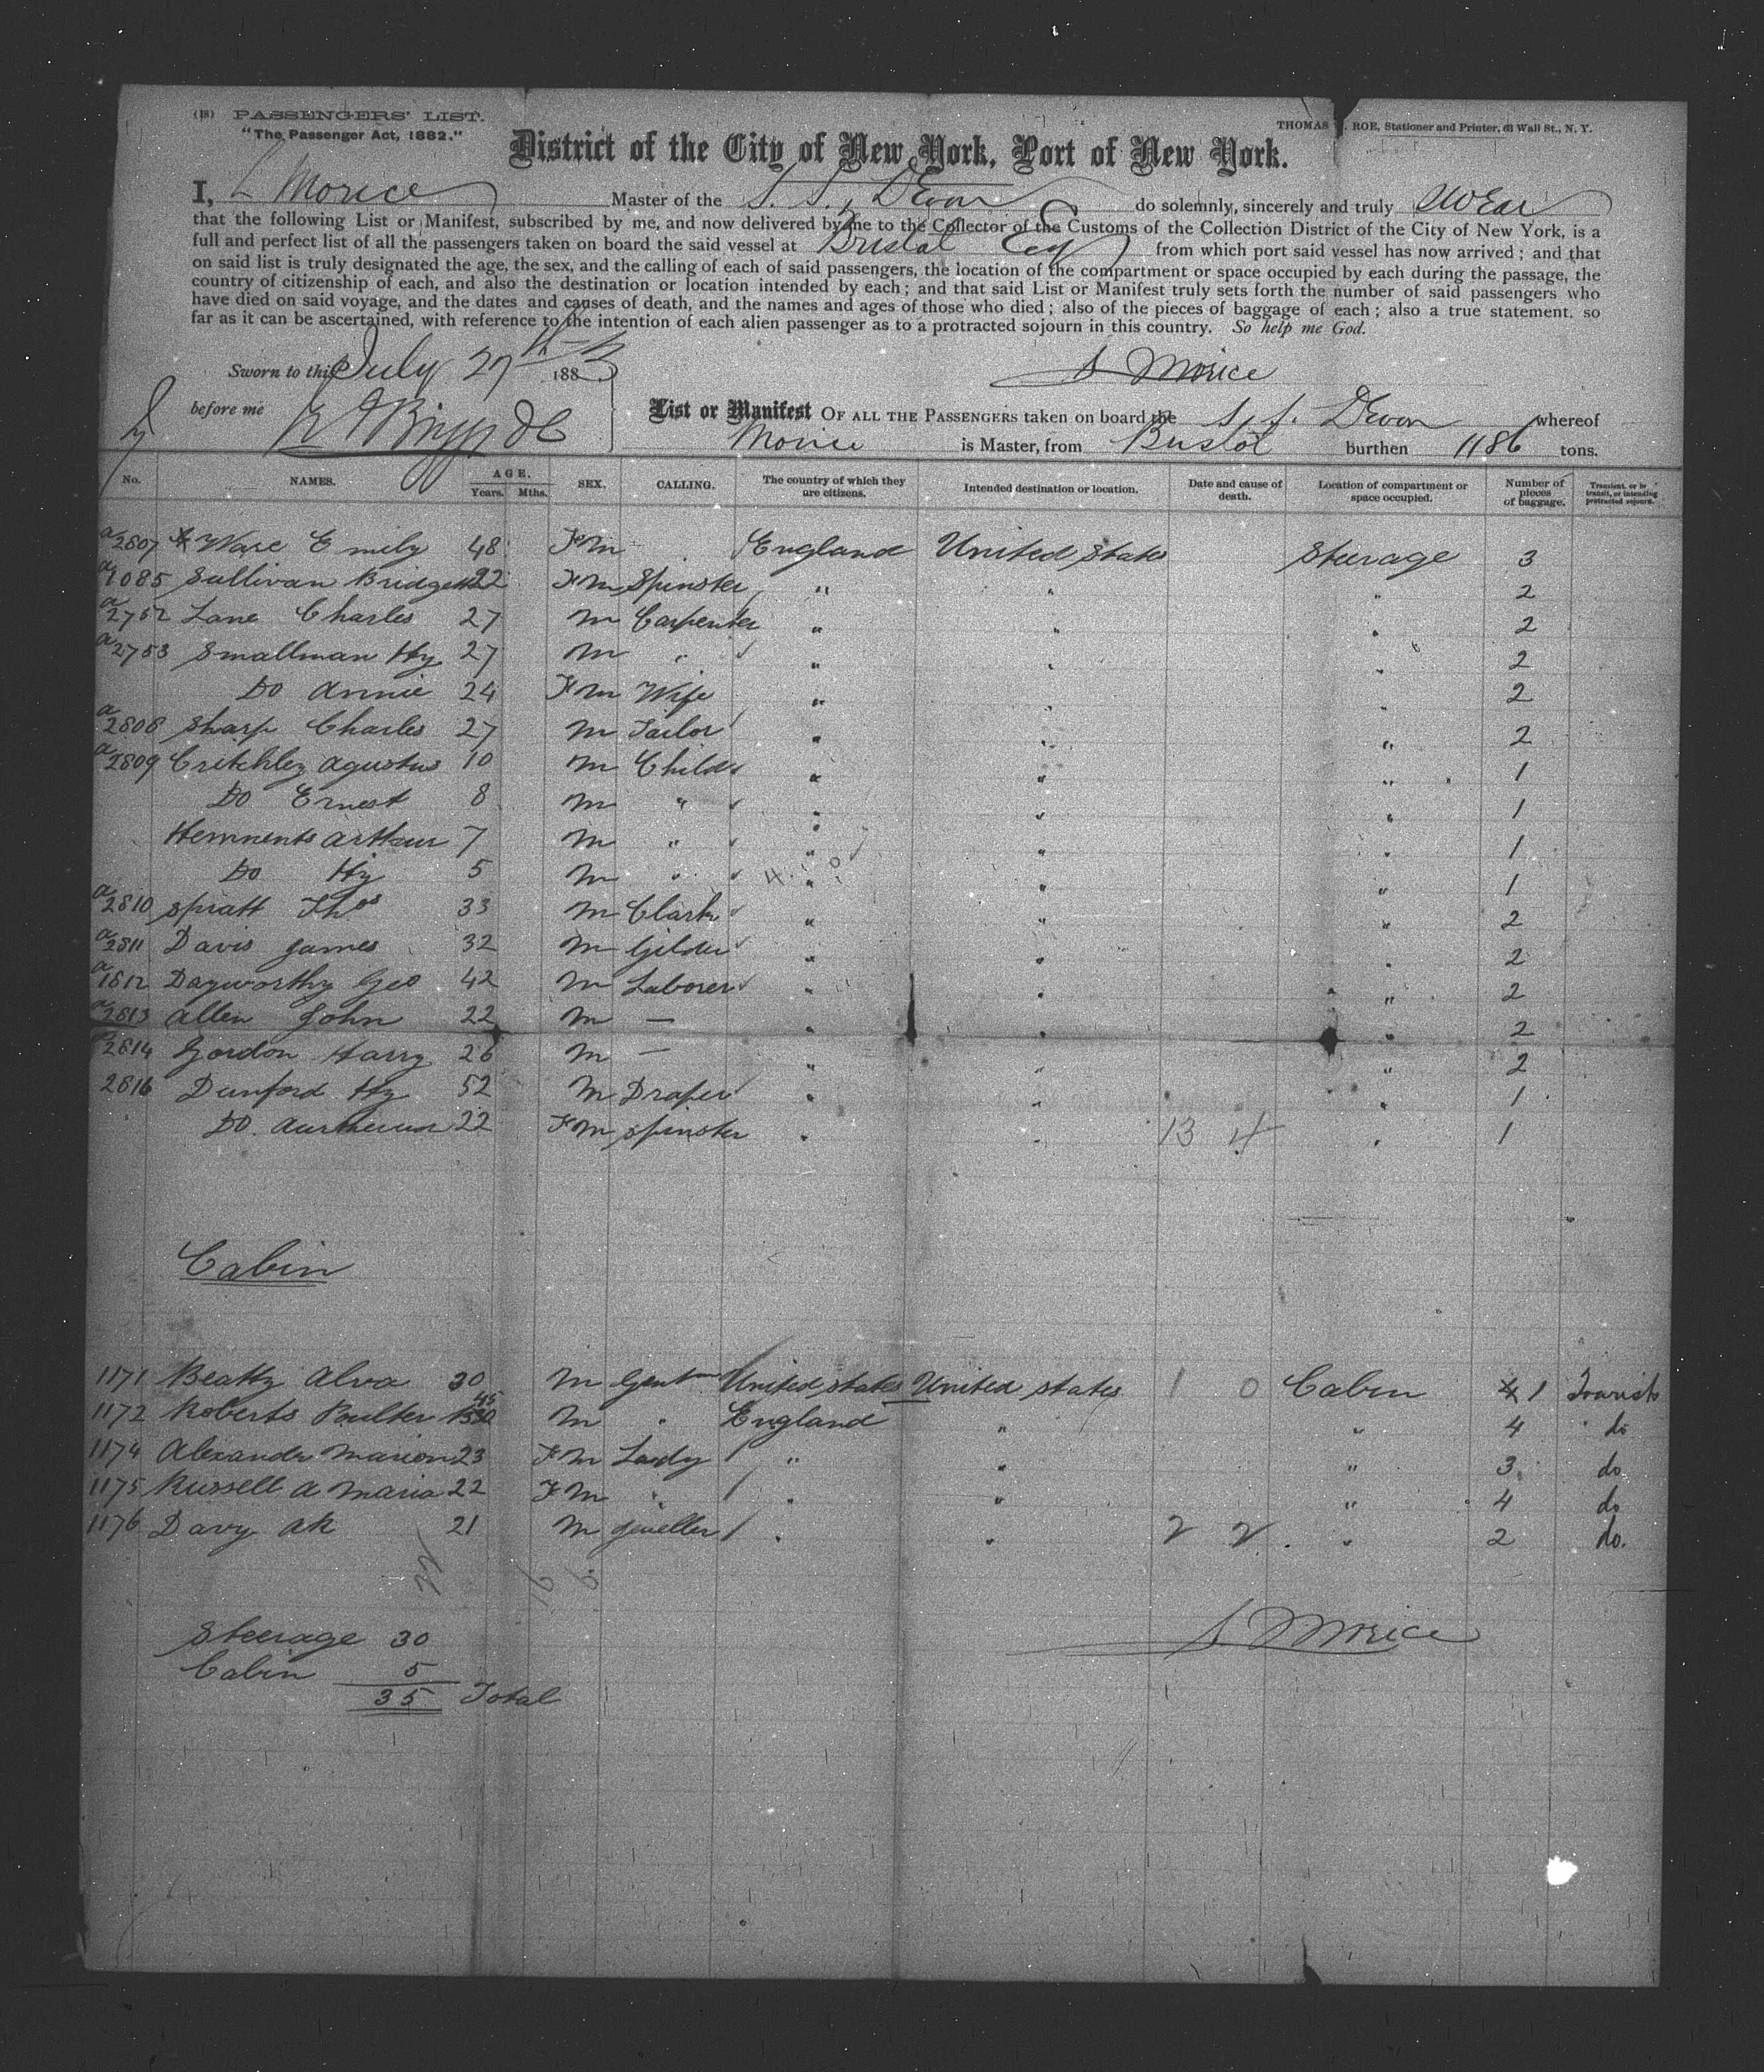 (18) PASSENGERS' LIST.
"The Passenger Act, 1882."
THOMAS ROE, Stationer and Printer, 61 Wall St., N. Y.
District of the City of New York, Port of New York.
I, Morice Master of the S. S. Devon do solemnly, sincerely and truly swear
that the following List or Manifest, subscribed by me, and now delivered by me to the Collector of the Customs of the Collection District of the City of New York, is a
full and perfect list of all the passengers taken on board the said vessel at Bristol Eng from which port said vessel has now arrived; and that
on said list is truly designated the age, the sex, and the calling of each of said passengers, the location of the compartment or space occupied by each during the passage, the
country of citizenship of each, and also the destination or location intended by each; and that said List or Manifest truly sets forth the number of said passengers who
have died on said voyage, and the dates and causes of death, and the names and ages of those who died; also of the pieces of baggage of each; also a true statement, so
far as it can be ascertained, with reference to the intention of each alien passenger as to a protracted sojourn in this country. So help me God.
Sworn to this July 27th 1883
S Morice
before me
List or Manifest OF ALL THE PASSENGERS taken on board the S. S. Devon whereof
Morice is Master, from Bristol burthen 1186 tons.
No. NAMES. AGE. Years. Mths. SEX. CALLING. The country of which they are citizens. Intended destination or location. Date and cause of death. Location of compartment or space occupied. Number of pieces of baggage. Transient, or in transit, or intending protracted sojourn.
a 2807 Ware Emily 48 Fm England United States Steerage 3
a 1085 Sullivan Bridget 22 Fm Spinster " " " 2
a 2752 Lane Charles 27 m Carpenter " " " 2
a 2753 Smallman Hy 27 m " " " " 2
Do Annie 24 Fm Wife " " " 2
a 2808 Sharp Charles 27 m Tailor " " " 2
a 2809 Critchley Agustus 10 m Child " " " 1
Do Ernest 8 m " " " " 1
Hemnents Arthur 7 m " " " " 1
Do Hy 5 m " " " " 1
a 2810 Spratt Thos 33 m Clark " " " 2
a 2811 Davis James 32 m Gilder " " " 2
a 1812 Dayworthy Geo 42 m Laborer " " " 2
a 2813 Allen John 22 m — " " " 2
a 2814 Gordon Harry 26 m — " " " 2
2816 Dunford Hy 52 m Draper " " " 1
Do 22 Fm Spinster " " 13 4 " 1
Cabin
1171 Beatty Alva 30 m Gentm United States United States 1 0 Cabin 1 Transit
1172 Roberts Poulter 45 m " England " " 4 do
1174 Alexander Marion 23 Fm Lady " " " 3 do
1175 Russell A Maria 22 Fm " " " " 4 do
1176 Davy AR 21 m Jeweller " " 2 2 " 2 do.
Steerage 30
S. Morice
Cabin 5
35 Total